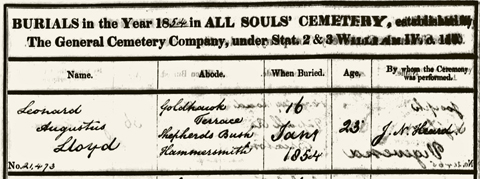 BURIALS in the Year 1854 in ALL SOULS' CEMETERY, established by
The General Cemetery Company, under Stat. 2 & 3 WILLIAM IV. c. 110.
Name. Abode. When Buried. Age. By whom the Ceremony was performed.
Leonard Augustus Lloyd
Goldhawk Terrace Shepherds Bush Hammersmith
16 Jany 1854
23
No. 21,473